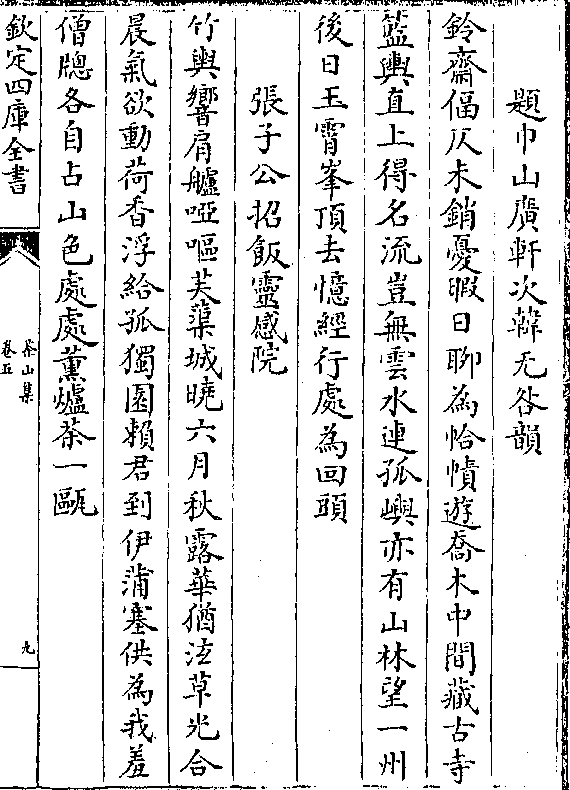 題巾山廣軒次韓无咎韻
鈴齋偪仄未銷憂暇日聊為恰幘遊喬木中間藏古寺
籃輿直上得名流豈無雲水連孤嶼亦有山林望一州
後日玉霄峯頂去憶經行處為回頭
張子公招飯靈感院
竹輿響肩艫啞嘔芙蕖城曉六月秋露華猶泫草光合
晨氣欲動荷香浮給孤獨園賴君到伊蒲塞供為我羞
僧牕各自占山色處處薰爐茶一甌
欽定四庫全書
茶山集
卷五
九